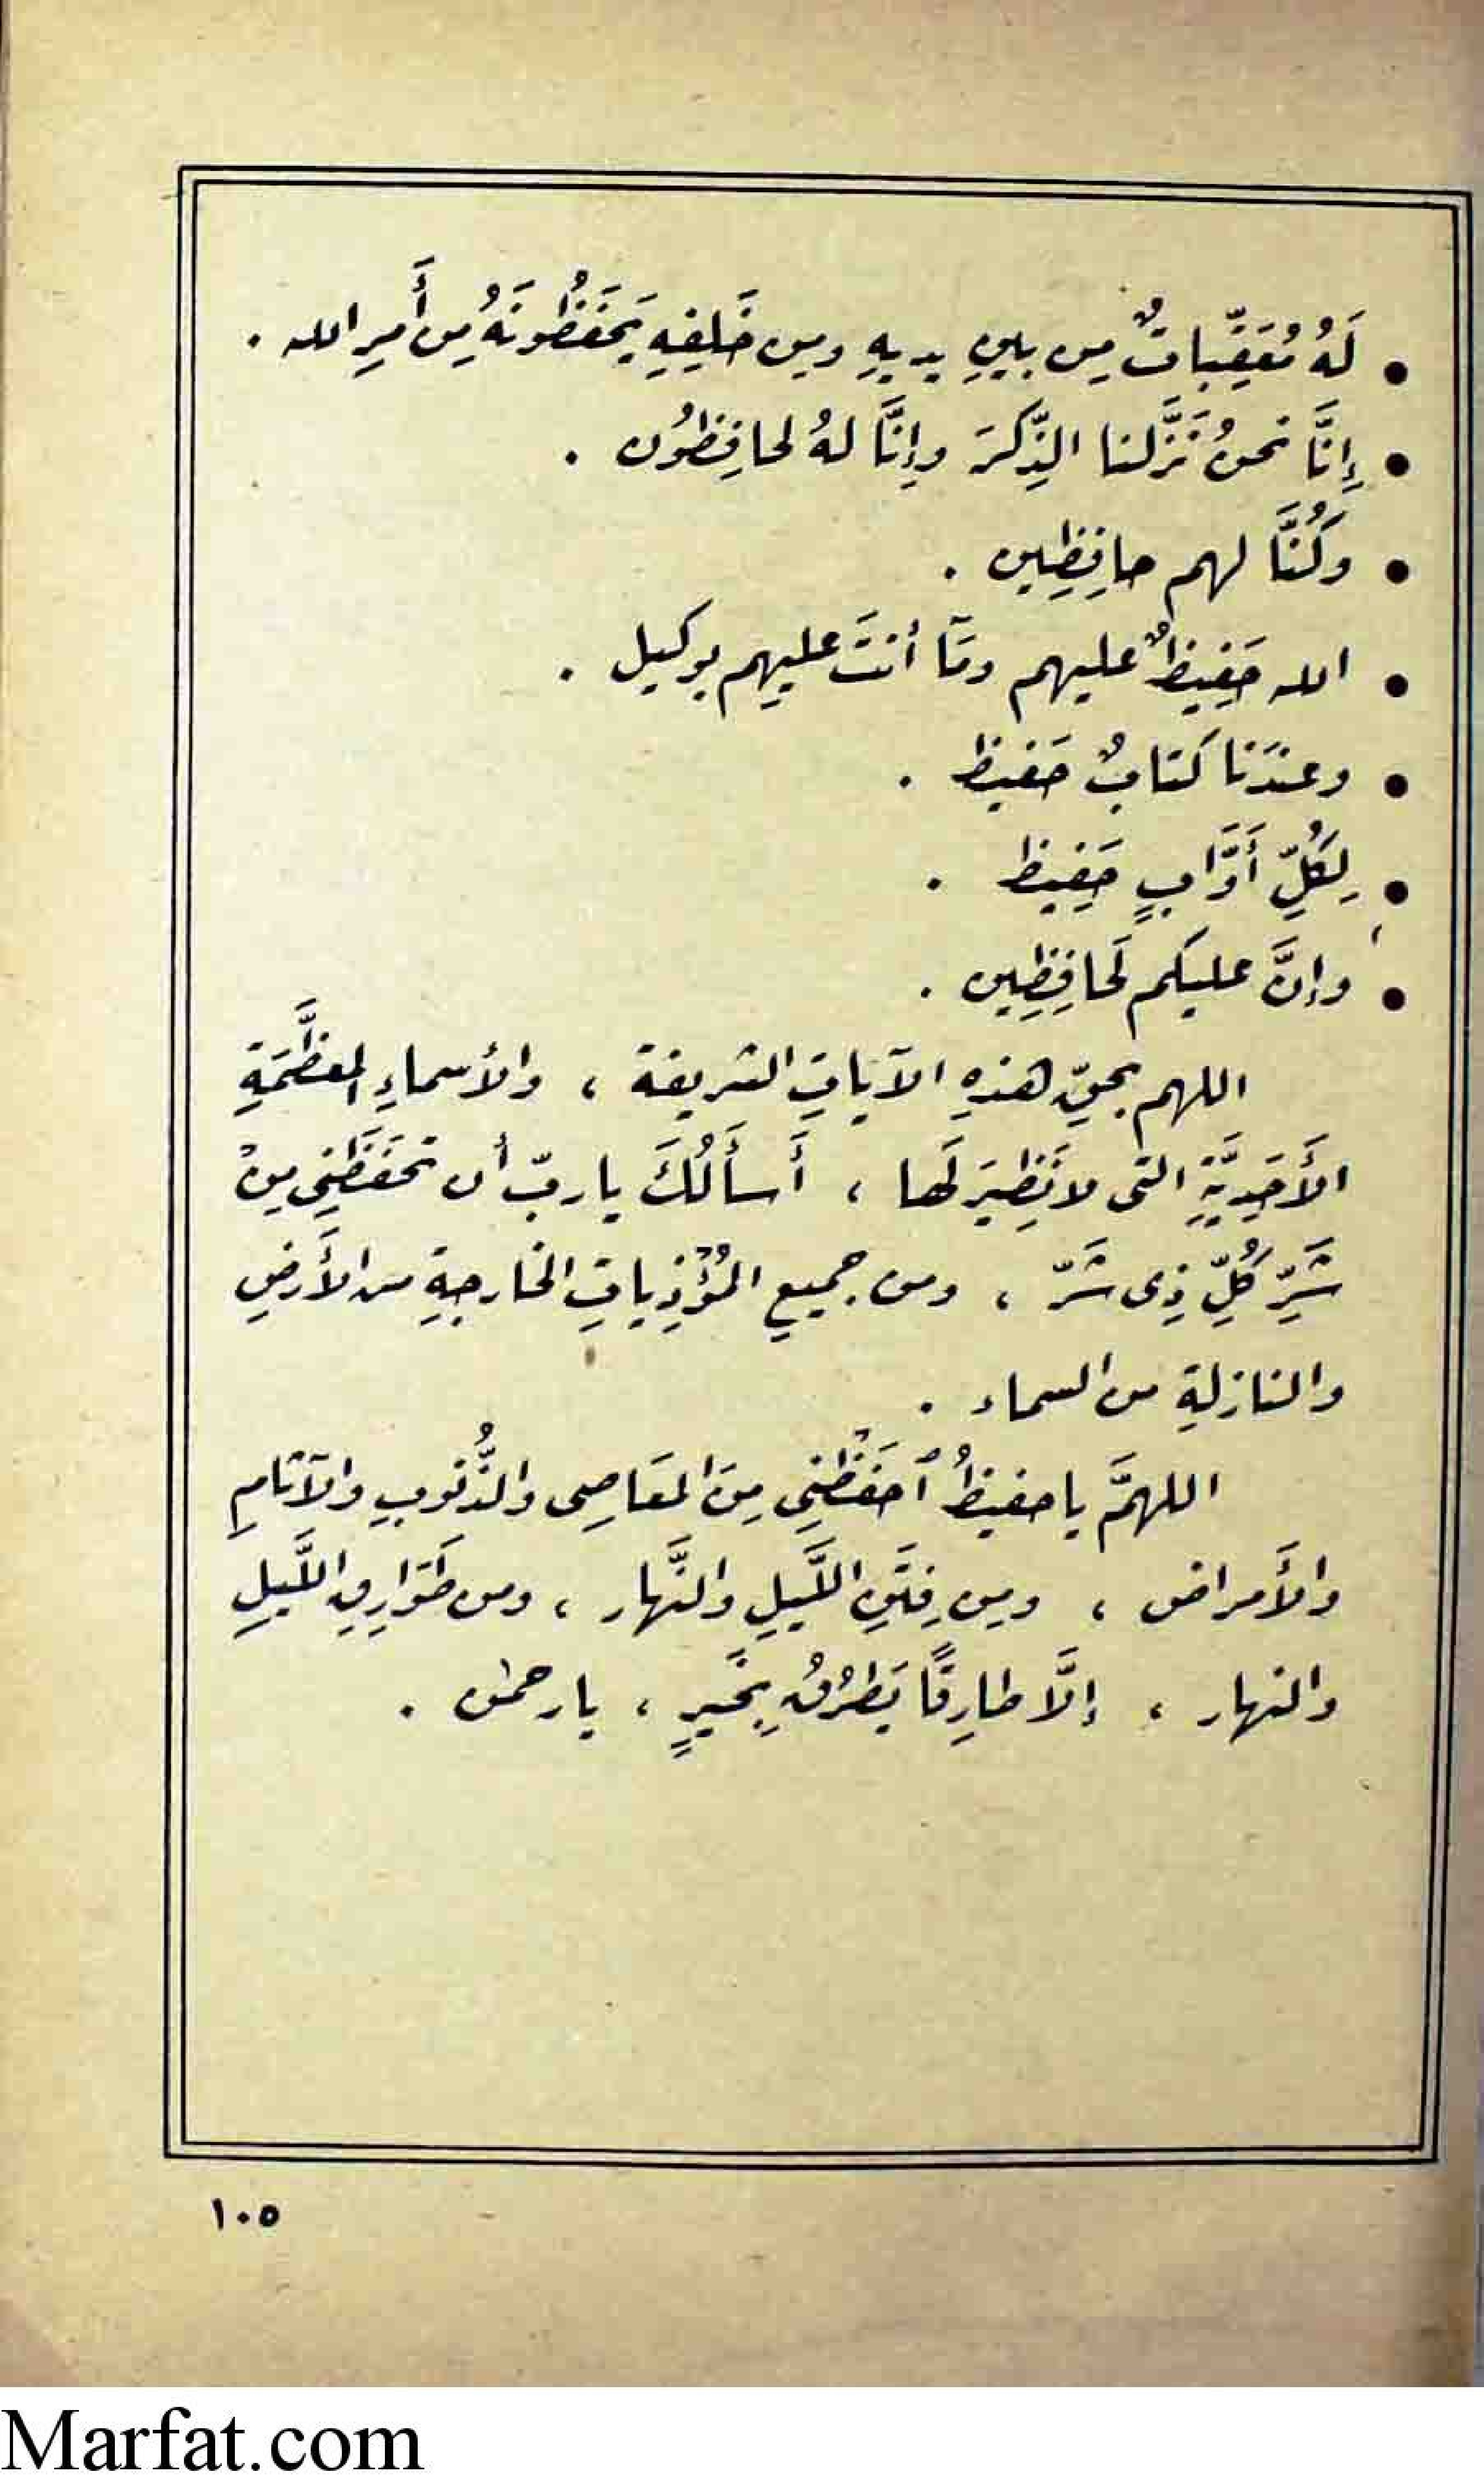 • لَهُ مُعَقِّبَاتٌ مِن بينِ يديهِ ومِن خَلفِهِ يَحفَظُونَهُ مِن أَمرِ الله .
• إِنَّا نحنُ نَزَّلنا الذِّكرَ وإِنَّا لهُ لحافِظُون .
• وكُنَّا لهم حافِظِين .
• الله حَفِيظٌ عليهم ومَآ أنتَ عليهم بوكيل .
• وعندَنا كتابٌ حَفيظ .
• لِكُلِّ أَوَّابٍ حَفِيظ .
• وإنَّ عليكم لَحافِظِين .
اللهم بحقِّ هذهِ الآيَاتِ الشريفة ، والأسماءِ المعَظَّمَةِ
الأَحَدِيَّةِ التى لا نَظِيرَ لَها ، أَسأَلُكَ يا ربّ أن تحفَظَنِى مِنْ
شَرِّ كُلِّ ذِى شَرّ ، ومن جميعِ المُؤْذِياتِ الخارجِةِ من الأَرضِ
والنازلةِ من السماء .
اللهمَّ يا حفيظُ ٱحفَظْنِى مِنَ المَعَاصِى والذُّنُوبِ والآثامِ
والأَمراض ، ومِن فِتَنِ اللَّيلِ والنَّهار ، ومن طَوَارِقِ اللَّيلِ
والنهار ، إلَّا طارِقًا يَطرُقُ بِخَيرٍ ، يا رحمٰن .
١٠٥
Marfat.com